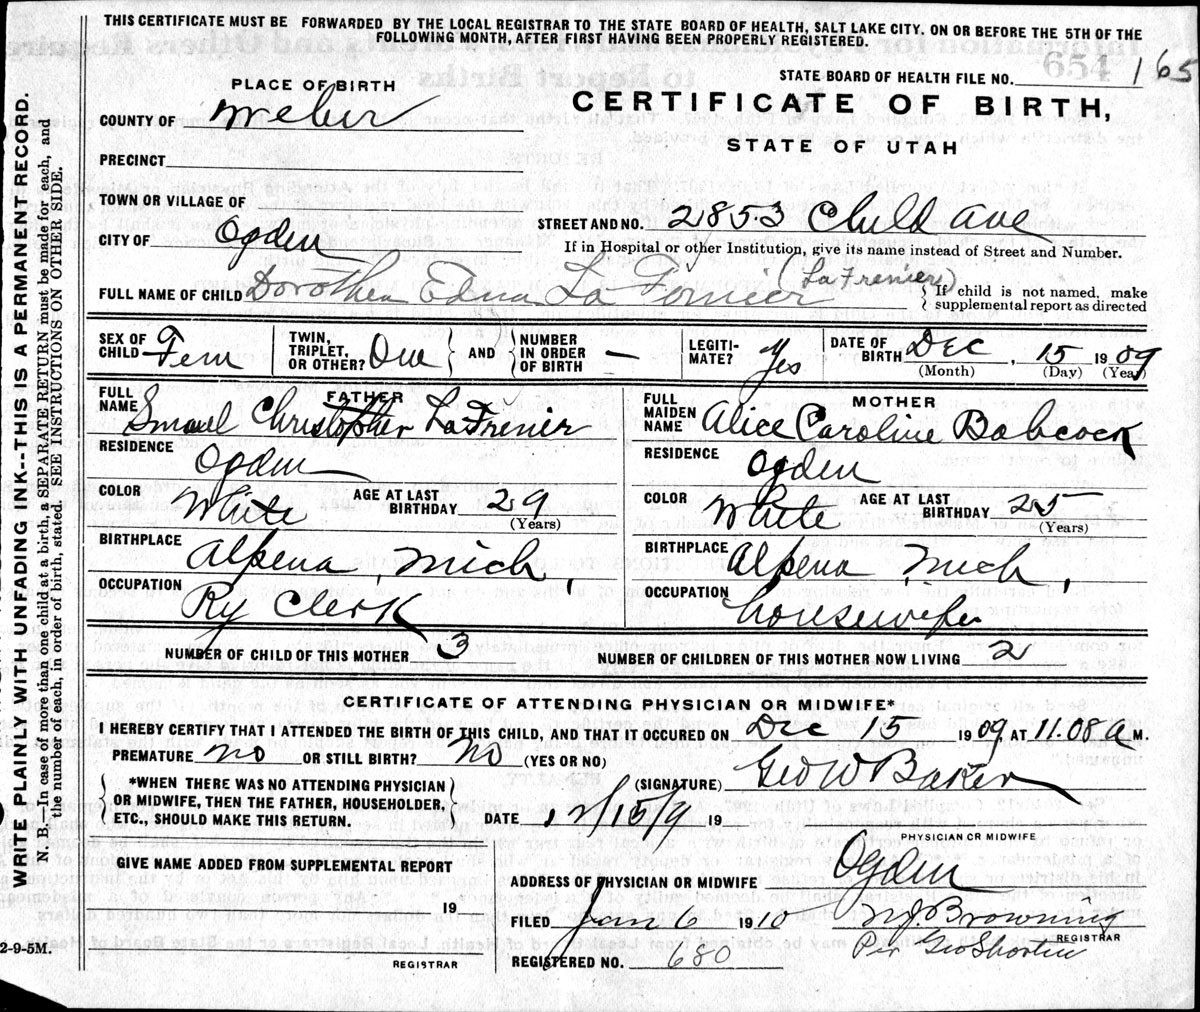 THIS CERTIFICATE MUST BE FORWARDED BY THE LOCAL REGISTRAR TO THE STATE BOARD OF HEALTH, SALT LAKE CITY. ON OR BEFORE THE 5TH OF THE
FOLLOWING MONTH, AFTER FIRST HAVING BEEN PROPERLY REGISTERED.
WRITE PLAINLY WITH UNFADING INK--THIS IS A PERMANENT RECORD.
N. B.--In case of more than one child at a birth, a SEPARATE RETURN must be made for each, and
the number of each, in order of birth, stated. SEE INSTRUCTIONS ON OTHER SIDE.
STATE BOARD OF HEALTH FILE NO. 165
654
PLACE OF BIRTH
CERTIFICATE OF BIRTH,
COUNTY OF Weber
STATE OF UTAH
PRECINCT
TOWN OR VILLAGE OF
STREET AND NO. 2853 Child Ave
CITY OF Ogden
If in Hospital or other Institution, give its name instead of Street and Number.
(La Frenier)
FULL NAME OF CHILD Dorothea Edna La Fernier
If child is not named, make
supplemental report as directed
SEX OF CHILD Fem
TWIN, TRIPLET, OR OTHER? One
AND
NUMBER IN ORDER OF BIRTH —
LEGITI-MATE? Yes
DATE OF BIRTH Dec, 15 1909
(Month) (Day) (Year)
FATHER
FULL NAME Christopher La Frenier
RESIDENCE Ogden
COLOR White AGE AT LAST BIRTHDAY 29
(Years)
BIRTHPLACE Alpena, Mich,
OCCUPATION Ry Clerk
MOTHER
FULL MAIDEN NAME Alice Caroline Babcock
RESIDENCE Ogden
COLOR White AGE AT LAST BIRTHDAY 25
(Years)
BIRTHPLACE Alpena, Mich,
OCCUPATION housewife
NUMBER OF CHILD OF THIS MOTHER 3
NUMBER OF CHILDREN OF THIS MOTHER NOW LIVING 2
CERTIFICATE OF ATTENDING PHYSICIAN OR MIDWIFE*
I HEREBY CERTIFY THAT I ATTENDED THE BIRTH OF THIS CHILD, AND THAT IT OCCURED ON Dec 15 1909 AT 11.08 a M.
PREMATURE no OR STILL BIRTH? No (YES OR NO)
*WHEN THERE WAS NO ATTENDING PHYSICIAN
OR MIDWIFE, THEN THE FATHER, HOUSEHOLDER,
ETC., SHOULD MAKE THIS RETURN.
(SIGNATURE) Geo W Baker
DATE 12/15/9 19
PHYSICIAN OR MIDWIFE
GIVE NAME ADDED FROM SUPPLEMENTAL REPORT
19
REGISTRAR
ADDRESS OF PHYSICIAN OR MIDWIFE Ogden
FILED Jan 6 1910
M. J. Browning
REGISTRAR
REGISTERED NO. 680
Per Geo Shorten
2-9-5M.